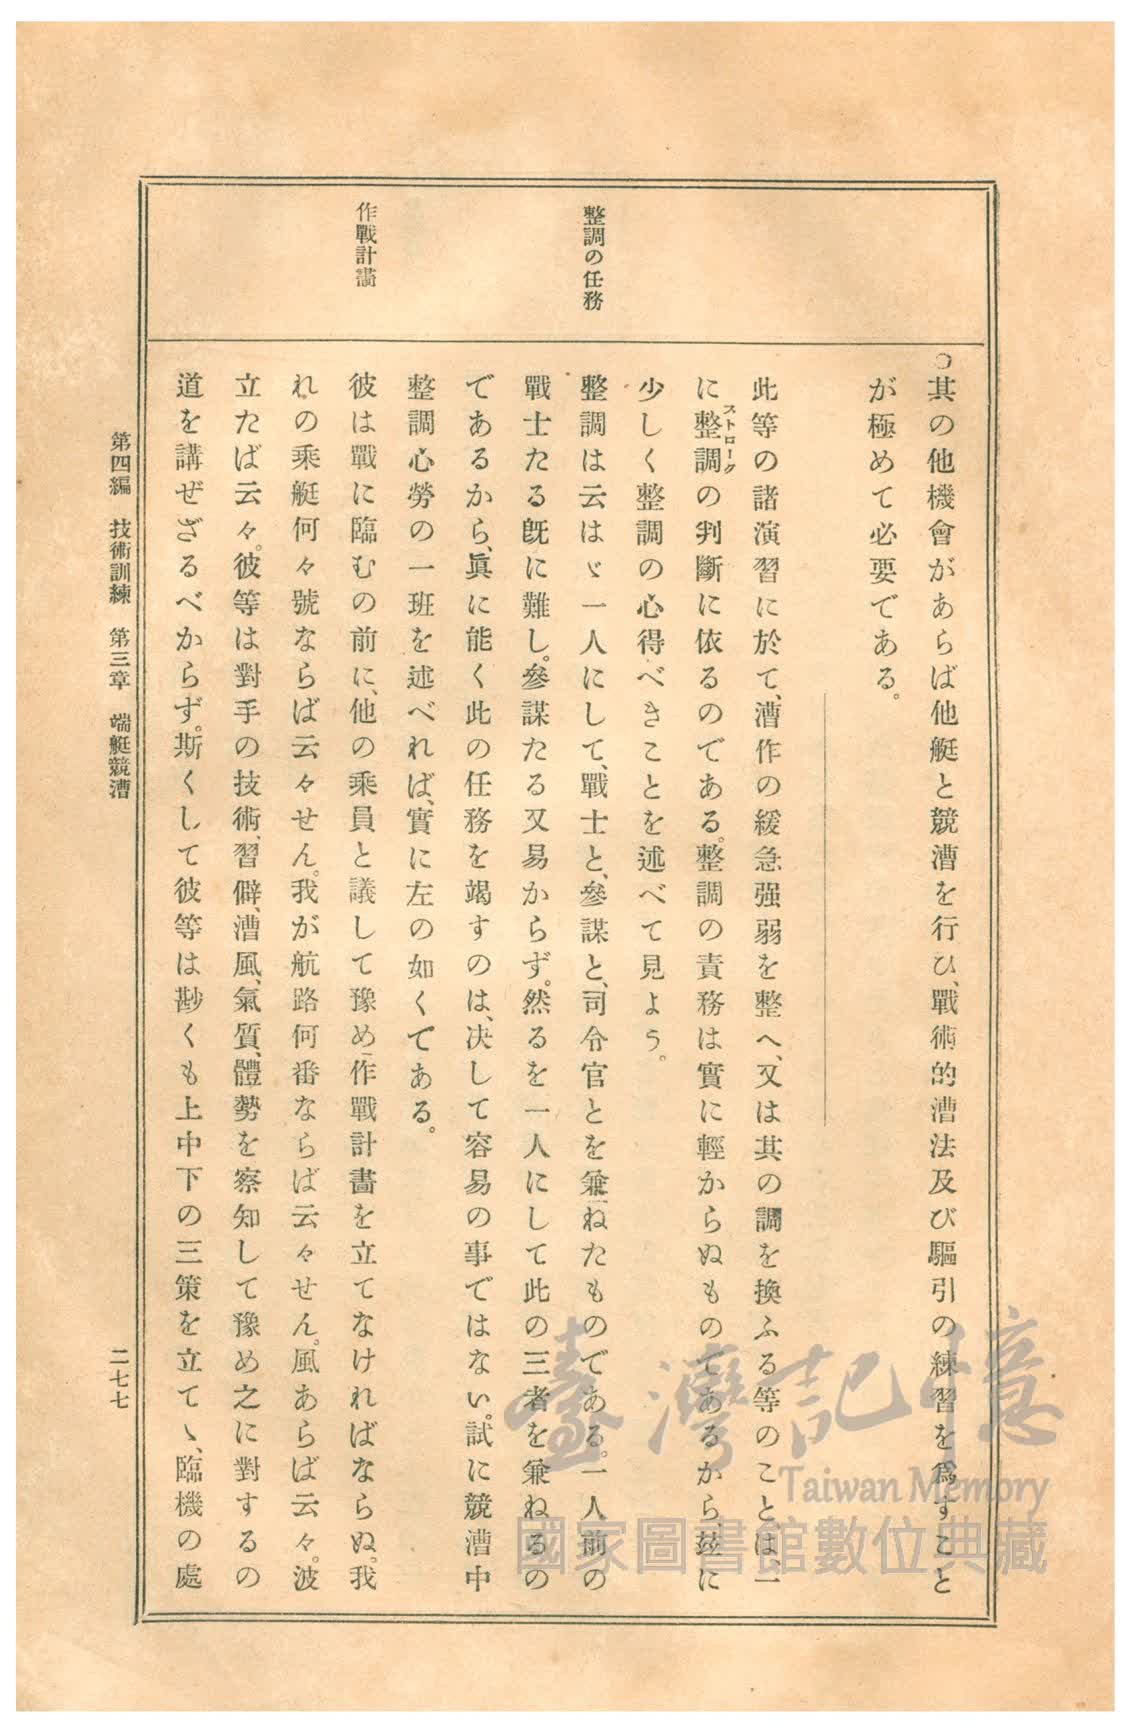 整調の任務
作戰計畵
○其の他機會があらば他艇と競漕を行ひ、戰術的漕法及び驅引の練習を爲すこと
が極めて必要である。
此等の諸演習に於て、漕作の緩急强弱を整へ、又は其の調を換ふる等のことは、一
に整調の判斷に依るのである。整調の責務は實に輕からぬものであるから、玆に
ストローグ
少しく整調の心得べきことを述べて見よう。
整調は云はゞ一人にして、戰士と、參謀と、司令官とを兼ねたものである。一人前の
戰士たる旣に難し。參謀たる又易からず。然るを一人にして此の三者を兼ねるの
であるから、眞に能く此の任務を竭すのは、决して容易の事ではない。試に競漕中
整調心勞の一班を述べれば、實に左の如くである。
彼は戰に臨むの前に、他の乘員と議して豫め作戰計畵を立てなければならぬ。我
れの乘艇何々號ならば云々せん。我が航路何番ならば云々せん。風あらば云々。波
立たば云々。彼等は對手の技術、習僻、漕風、氣質、體勢を察知して豫め之に對するの
道を講ぜざるべからず。斯くして彼等は尠くも上中下の三策を立てゝ、臨機の處
第四編 技術訓練 第三章 端艇競漕
二七七
臺灣記憶
Taiwan Memory
國家圖書館數位典藏